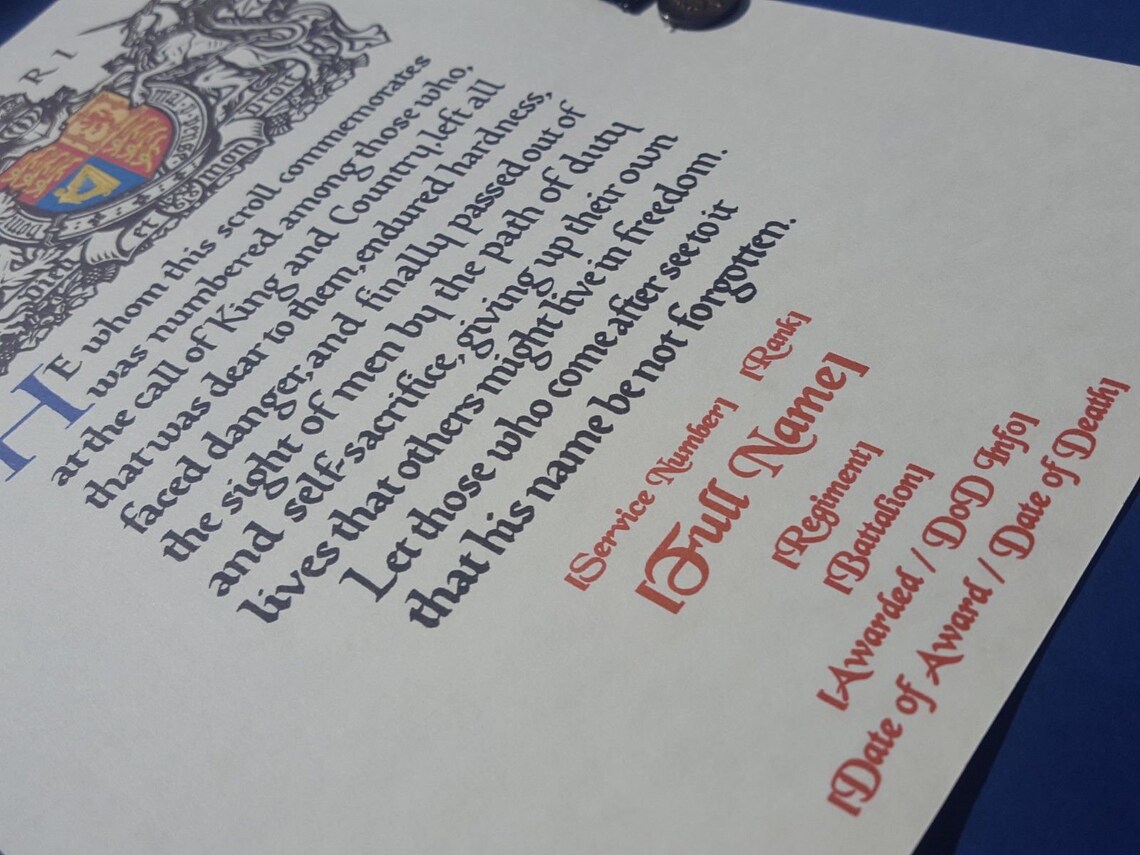 R I
DIEU ET MON DROIT
HE whom this scroll commemorates
was numbered among those who,
at the call of King and Country, left all
that was dear to them, endured hardness,
faced danger, and finally passed out of
the sight of men by the path of duty
and self-sacrifice, giving up their own
lives that others might live in freedom.
Let those who come after see to it
that his name be not forgotten.
[Service Number] [Rank]
[Full Name]
[Regiment]
[Battalion]
[Awarded / DoD Info]
[Date of Award / Date of Death]